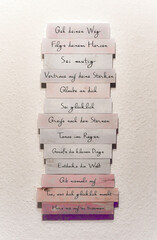 Geh deinen Weg
Folge deinem Herzen
Sei mutig
Vertraue auf deine Stärken
Glaube an dich
Sei glücklich
Greife nach den Sternen
Tanze im Regen
Genieße die kleinen Dinge
Entdecke die Welt
Gib niemals auf
Tue, was dich glücklich macht